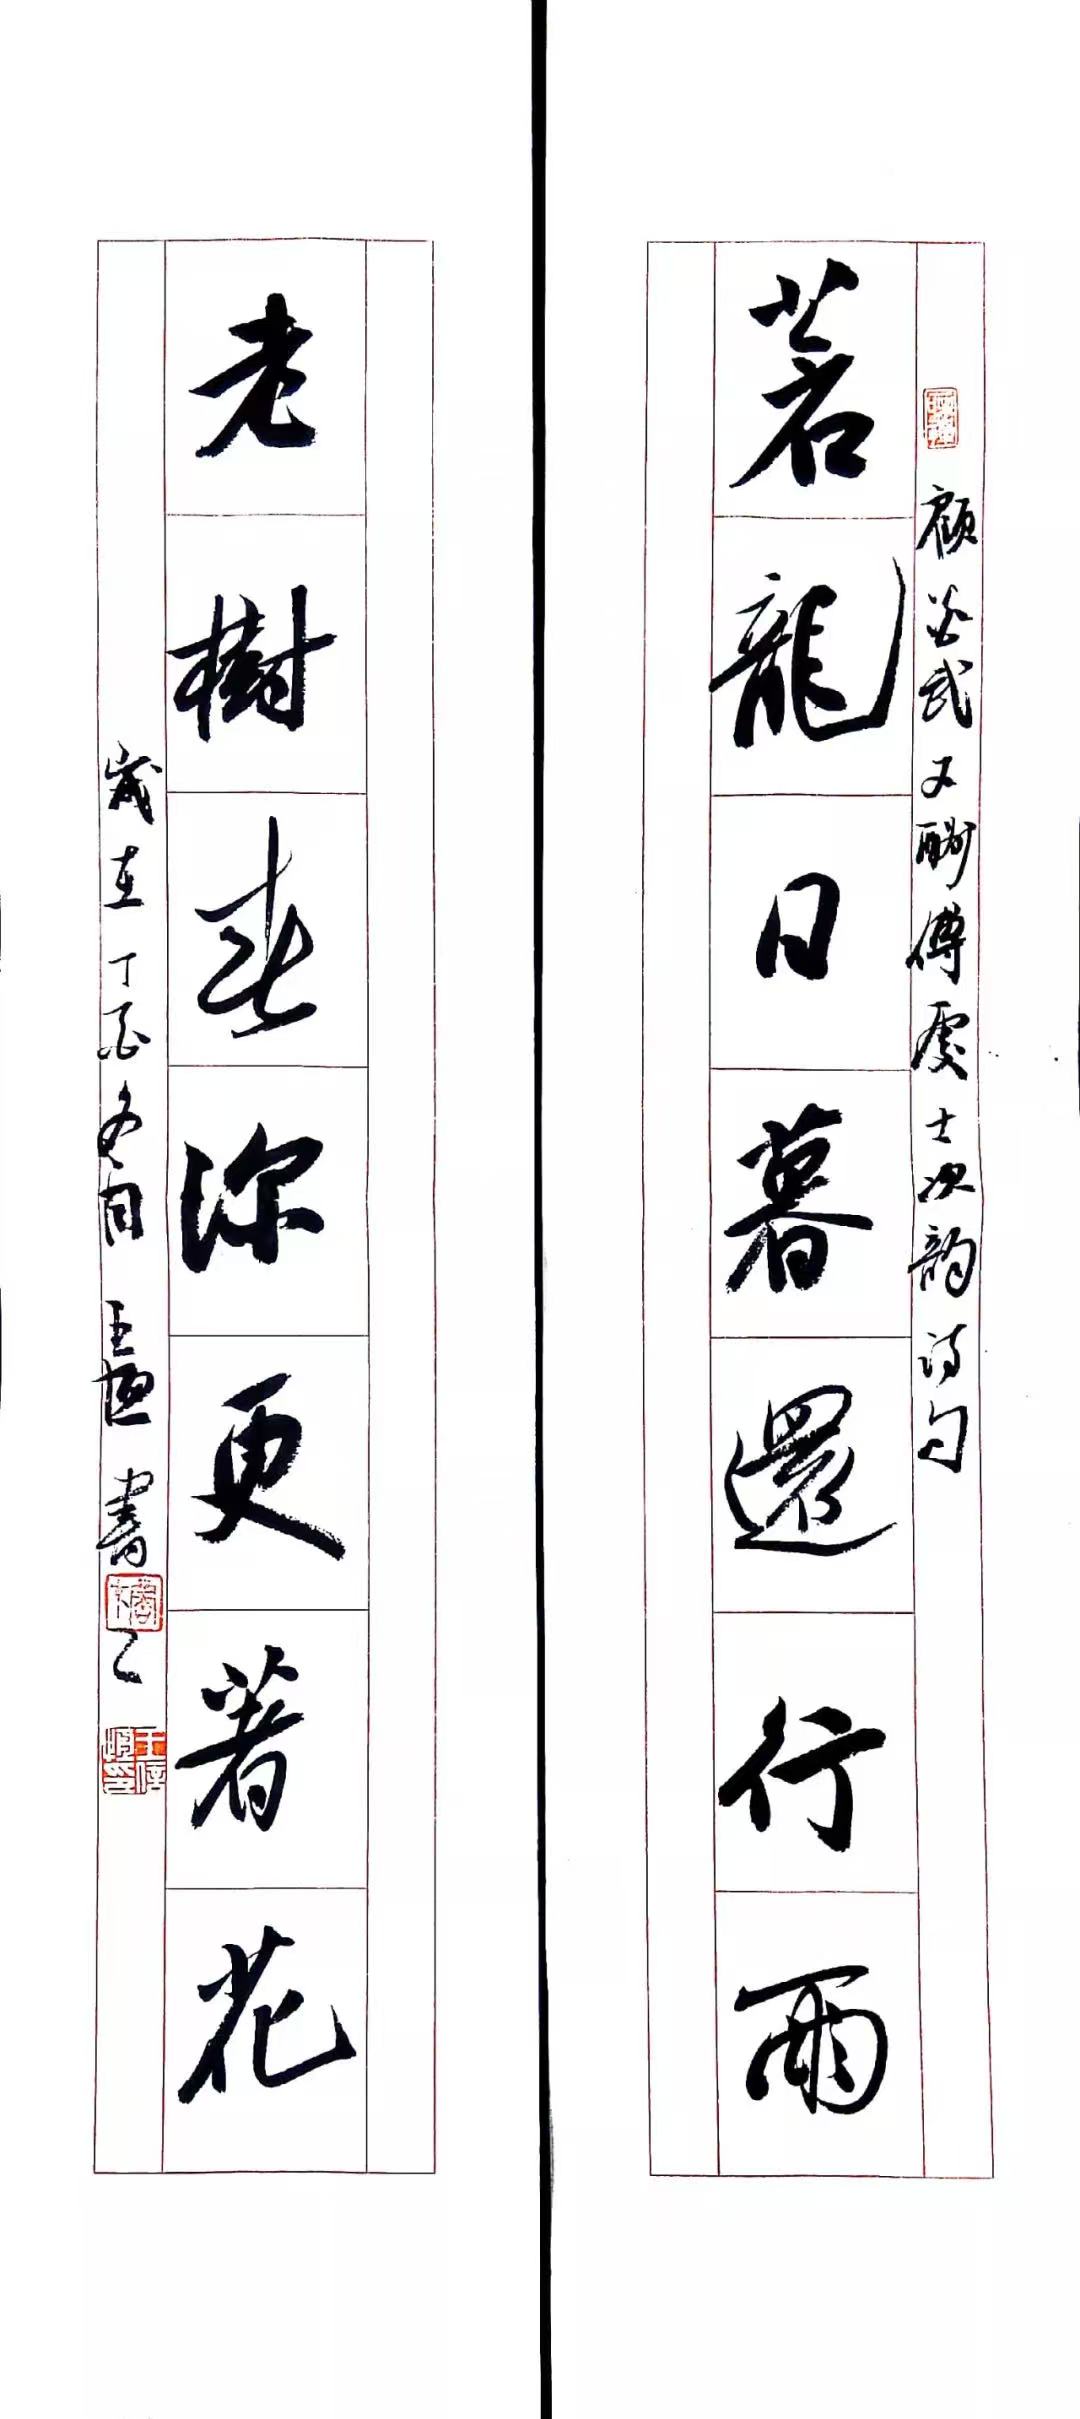 顧炎武又酬傅處士次韻诗句
蒼龍日暮還行雨
老樹春深更著花
歲在丁酉冬月王書